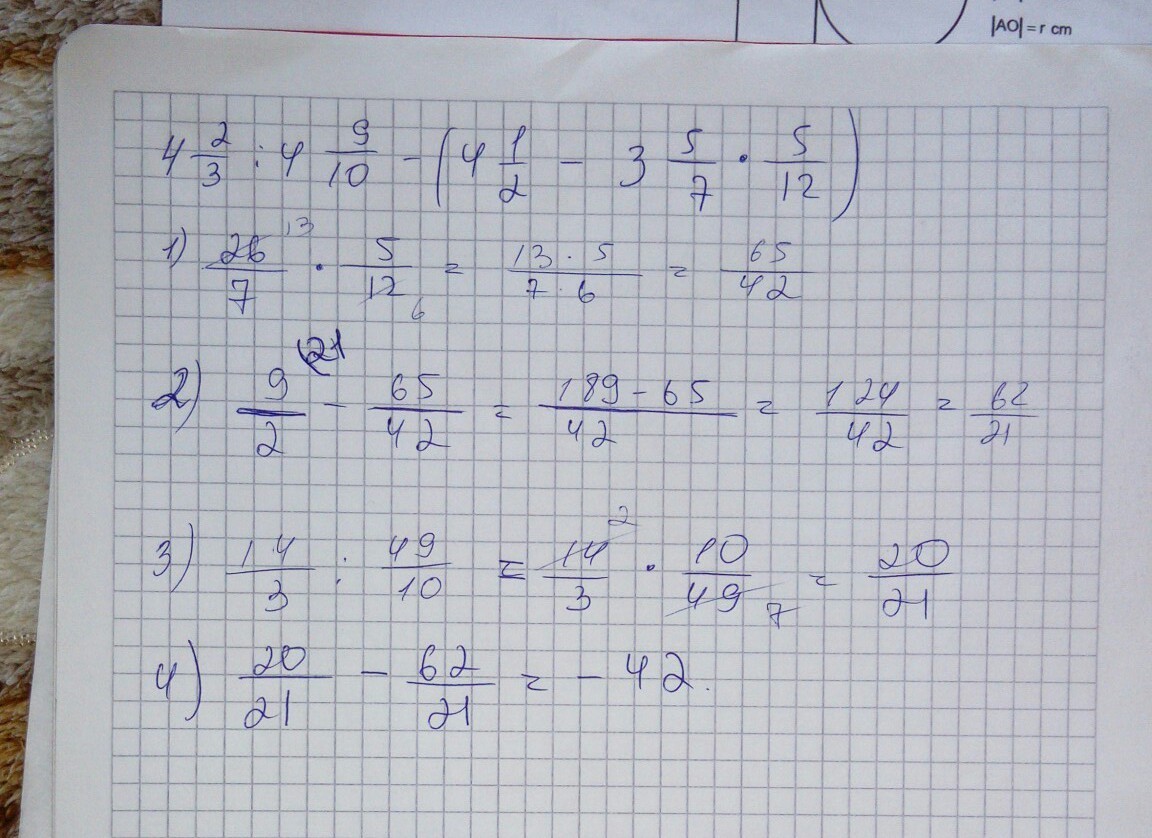 |AO| = r cm
4 2/3 : 4 9/10 - (4 1/2 - 3 5/7 · 5/12)
1) 26/7 13 · 5/12 6 = 13 · 5 / 7 · 6 = 65/42
2) 9/2 (21 - 65/42 = 189 - 65 / 42 = 124/42 = 62/21
3) 14/3 : 49/10 = 14/3 2 · 10/49 7 = 20/21
4) 20/21 - 62/21 = - 42.